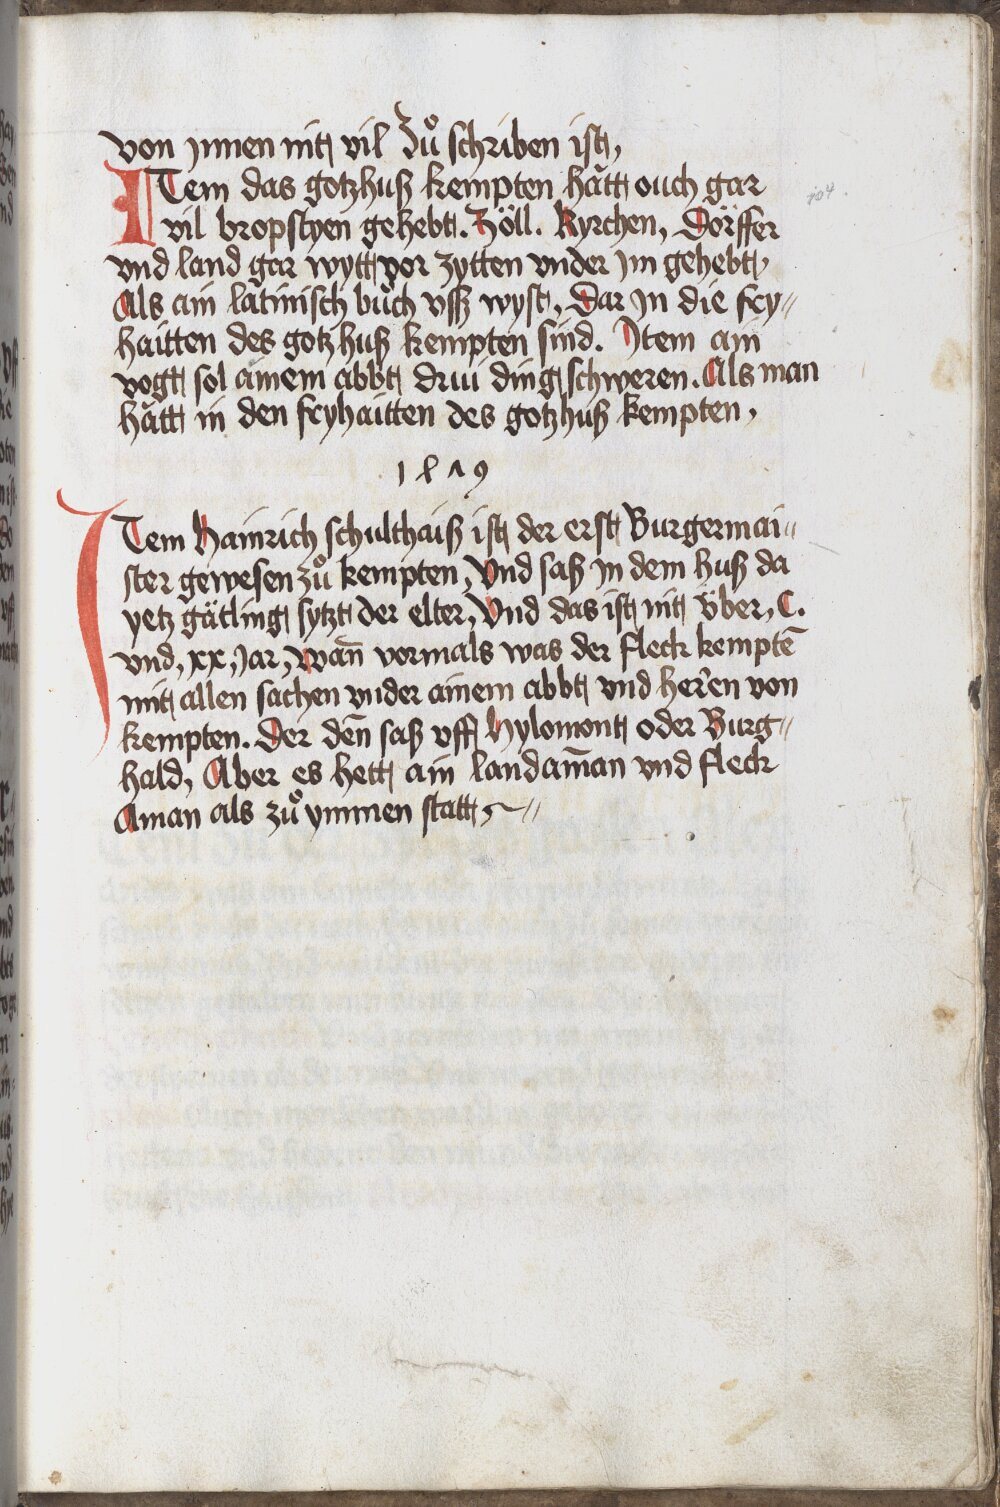 von jnnen nit vil Zů schriben ist,
104
ITem das gotzhuß kempten hătt ouch gar
vil bropstyen gehebt. Zöll. Kyrchen, Dörffer
vnd land gar wytt vor zytten vnder jm gehebt,
Als ain latinisch bůch vsß wyst, Dar jn die fry„
haitten des gotzhuß kempten sind. Jtem ain
vogtt sol ainem abbt driii ding schweren. Als man
hătt in den fryhaitten des gotzhuß kempten,
JTem Hainrich schulthaiß ist der erst Burgermai„
ster gewesen zů kempten, Vnd saß jn dem huß da
yetz gätling sytzt der elter, Vnd das ist nit über, C.
vnd, xx, Jar, wan̄ vormals was der fleck kemptē
mit allen sachen vnder ainem abbt vnd herrēn von
kempten. Der den̄ saß vff Hylomont oder Burg„
hald, Aber es hett ain landam̄an vnd fleck
Aman als zů ymmen statt